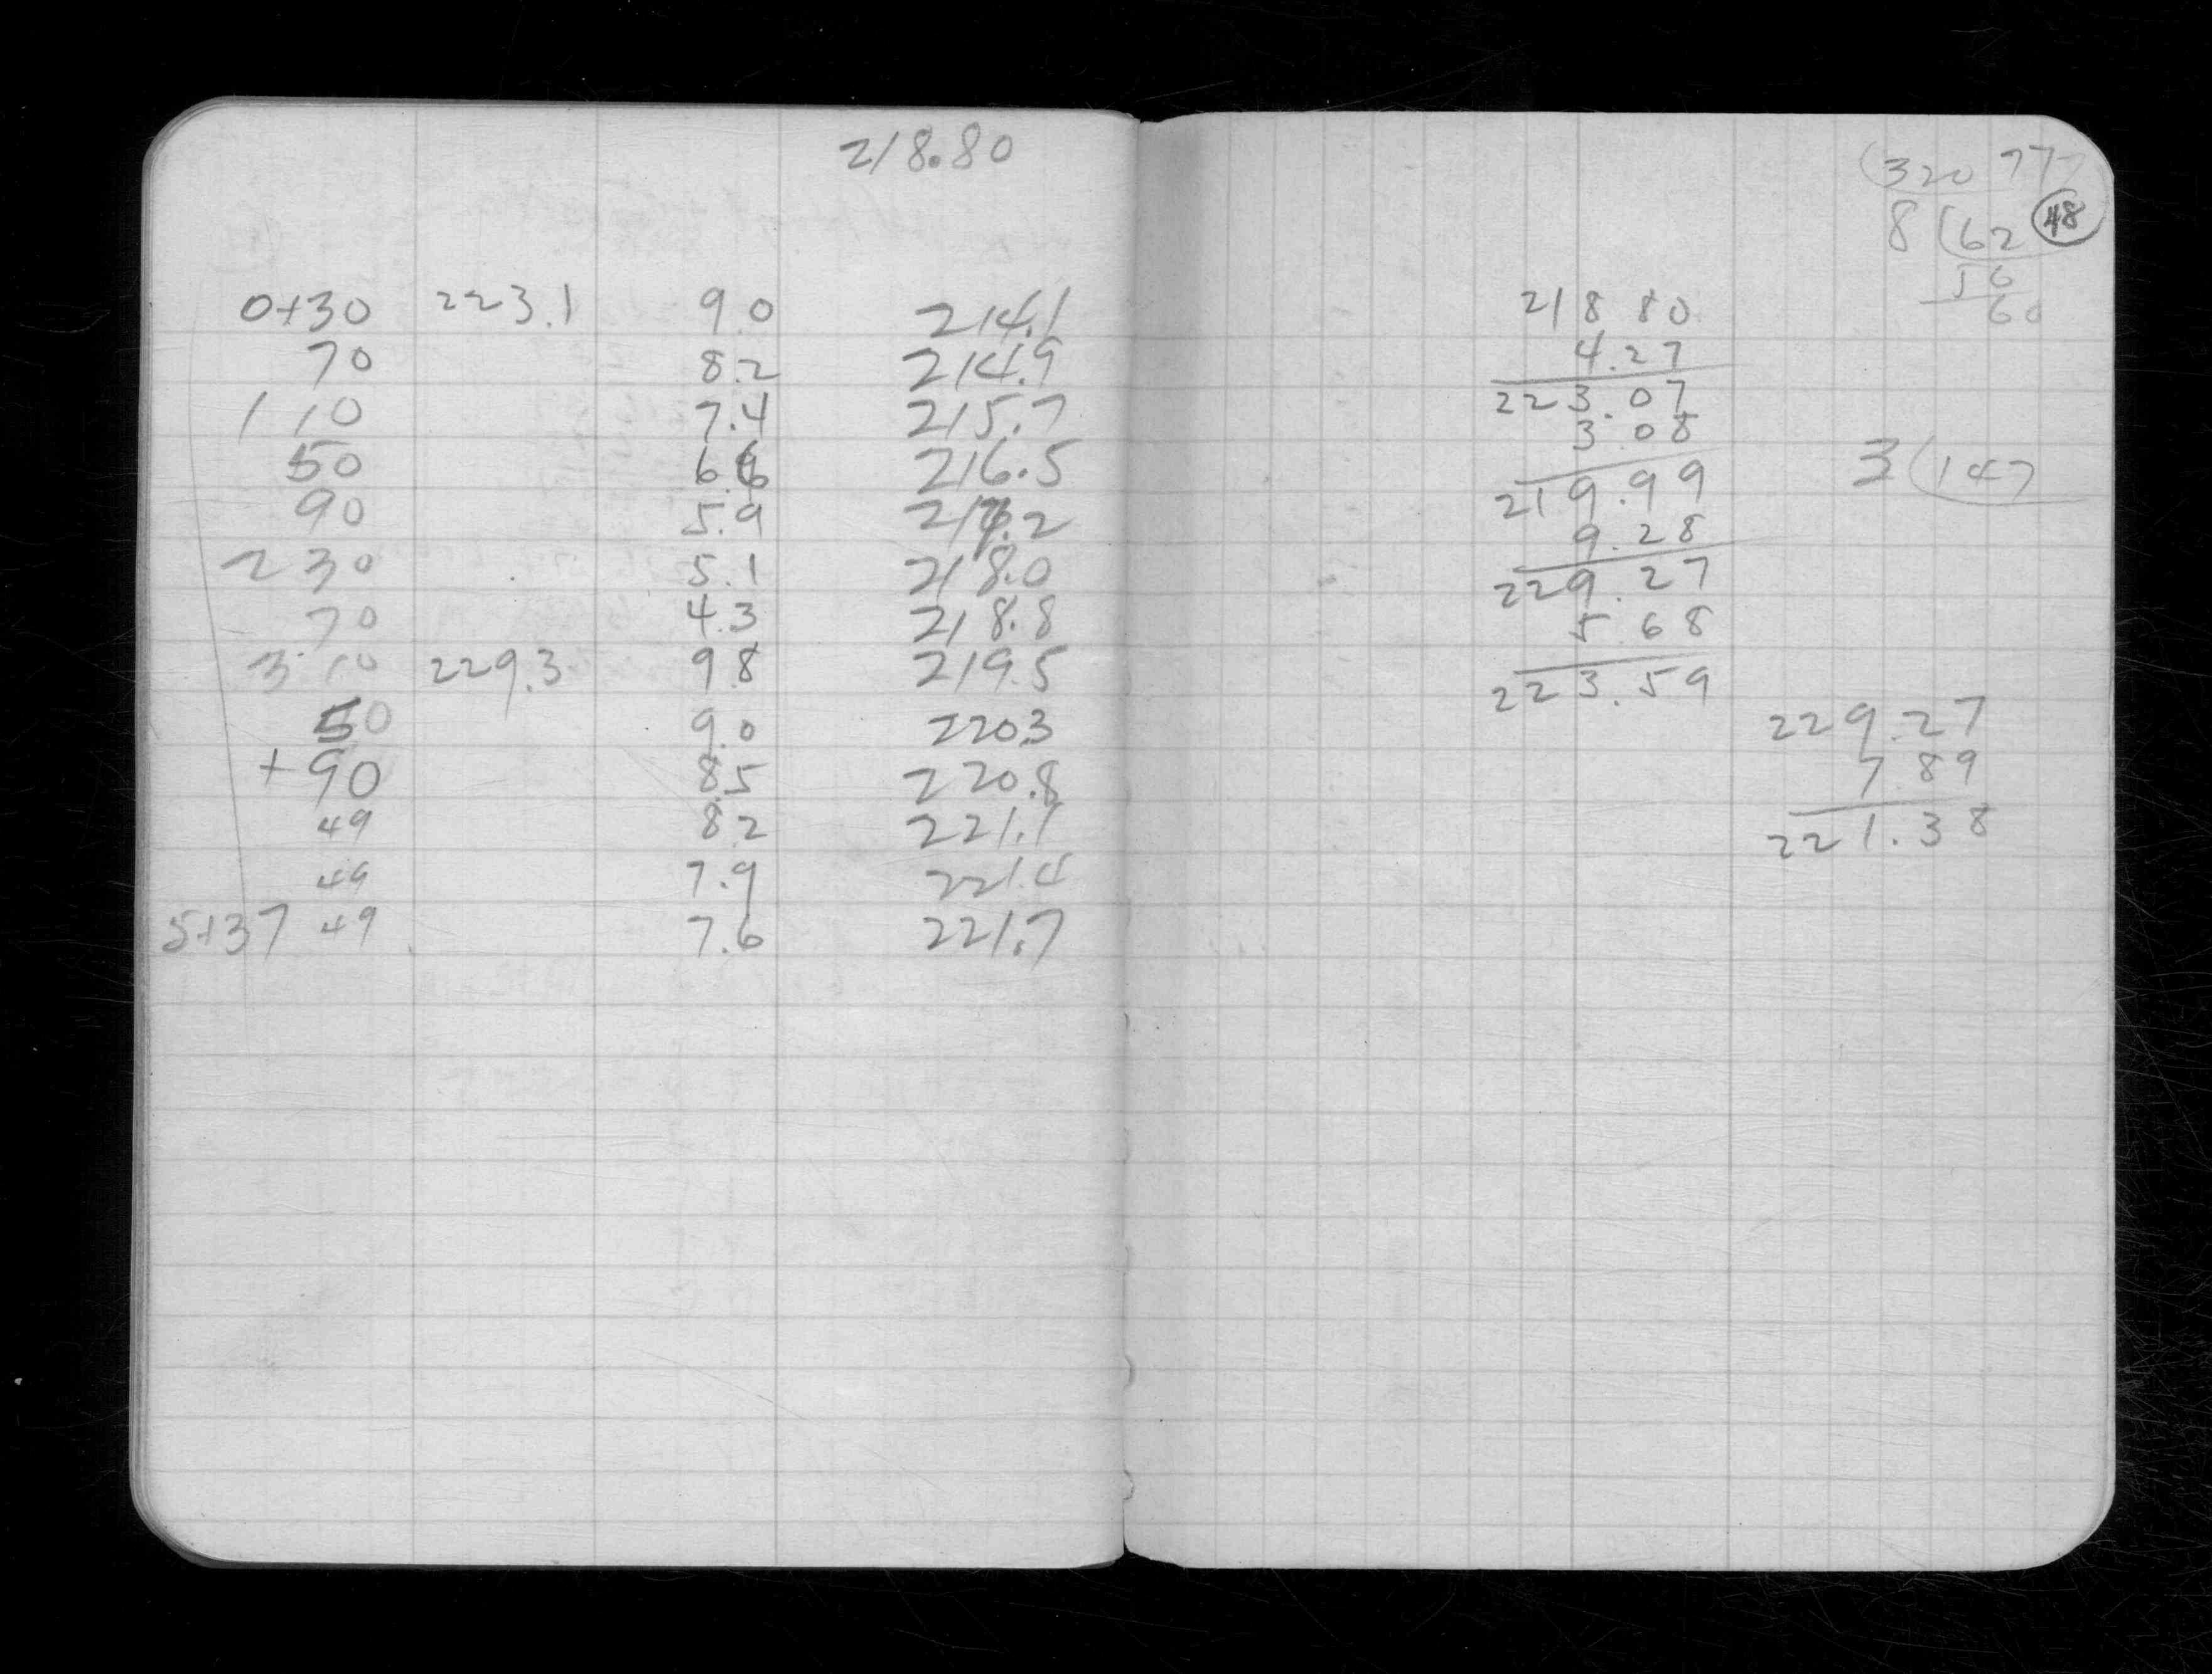 218.80
0+30 223.1 9.0 214.1
70 8.2 214.9
1 10 7.4 215.7
50 6.6 216.5
90 5.9 217.2
2 30 5.1 218.0
70 4.3 218.8
3 10 229.3 9.8 219.5
50 9.0 220.3
+90 8.5 220.8
49 8.2 221.1
49 7.9 221.4
5+37 49 7.6 221.7
320 777
48
8(62
56
60
218 80
4.27
223.07
3.08
219.99
9.28
229.27
5.68
223.59
3(147
229.27
7.89
221.38